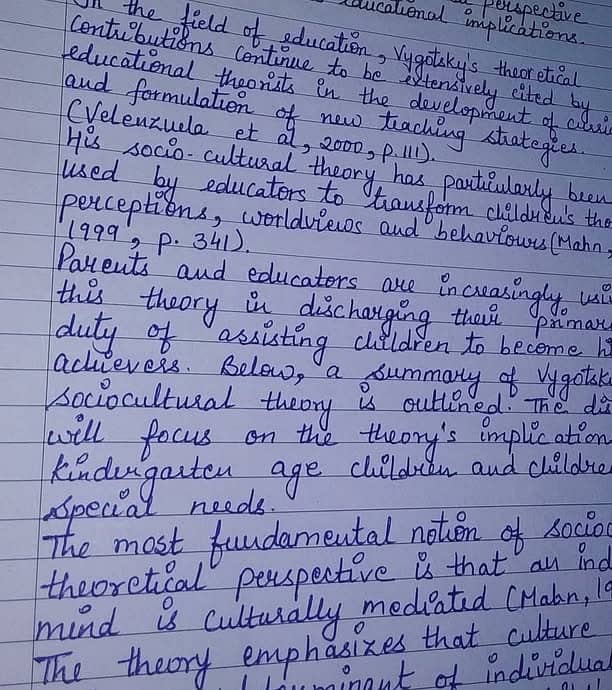 perspective
educational implications.
In the field of education, Vygotsky's theoretical
Contributions Continue to be extensively cited by
educational theorists in the development of
and formulation of new teaching strategies.
(Velenzuela et al, 2000, p.111).
His socio-cultural theory has particularly been
used by educators to transform children's
perceptions, worldviews and behaviours (Mahn,
1999, p. 341).
Parents and educators are increasingly
this theory in discharging their
duty of assisting children to become
achievess. Below, a summary of
sociocultural theory is outlined. The
will focus on the theory's
kindergarten age children and
special needs.
The most fundamental notion of
theoretical perspective is that an
mind is culturally mediated (Mahn,
The theory emphasizes that culture
of individual